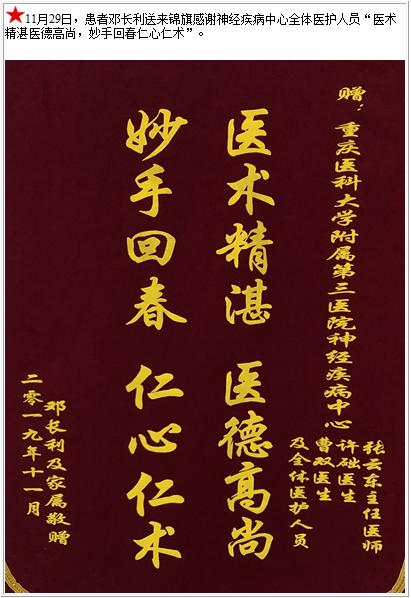 ★11月29日，患者邓长利送来锦旗感谢神经疾病中心全体医护人员“医术
精湛医德高尚，妙手回春仁心仁术”。
赠：重庆医科大学附属第三医院神经疾病中心
张云东主任医师
许础医生
曹双医生
及全体医护人员
医术精湛 医德高尚
妙手回春 仁心仁术
邓长利及家属敬赠
二零一九年十一月